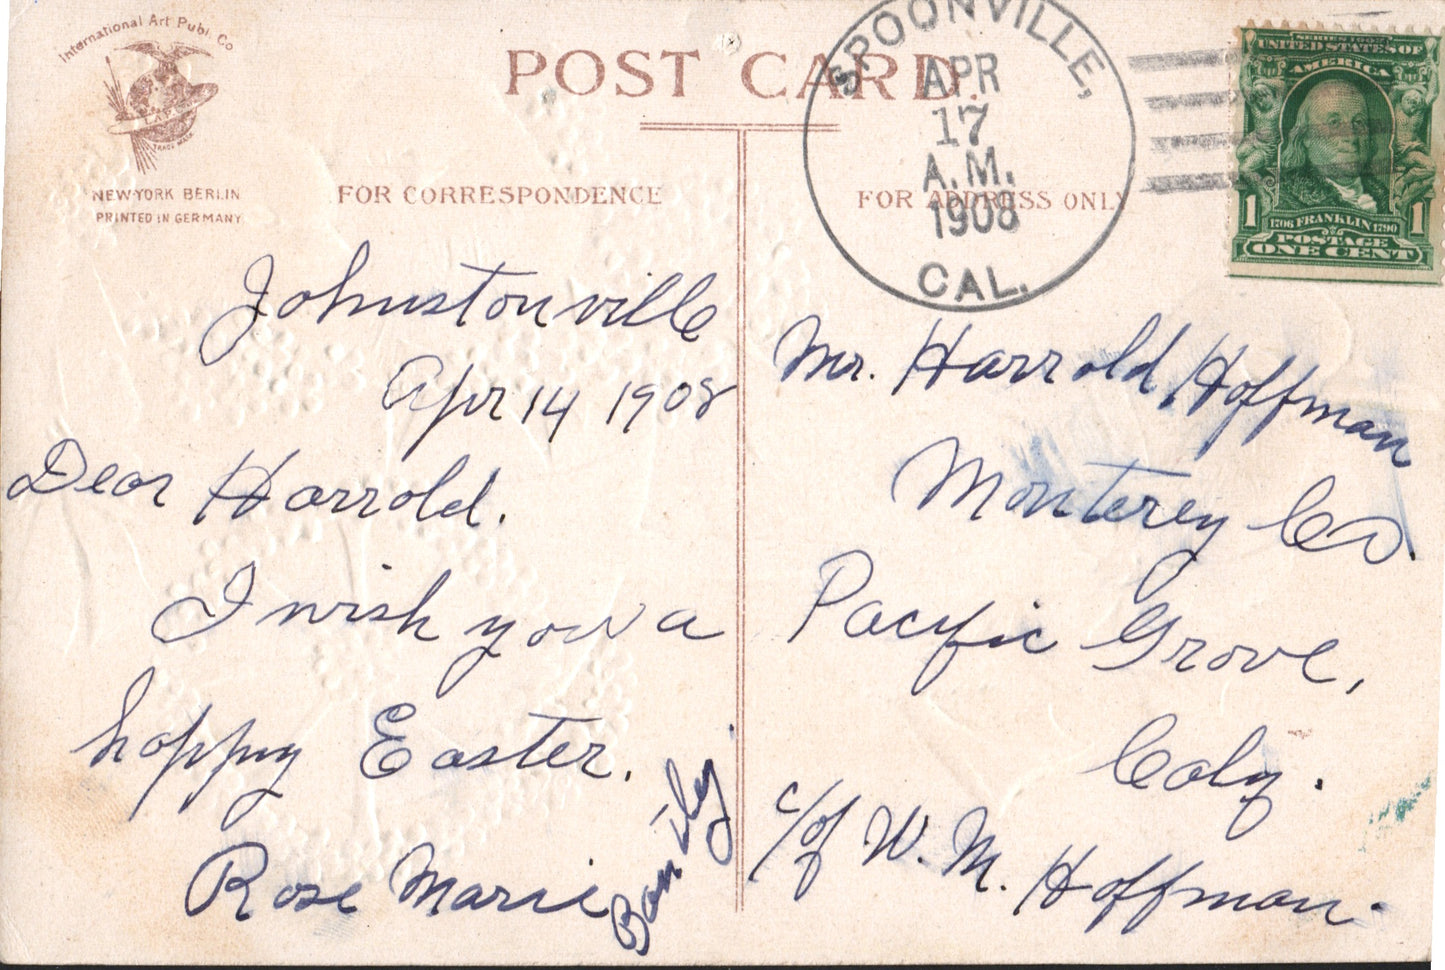 International Art Publ. Co.
A.P.C
TRADE MARK
NEW-YORK BERLIN
PRINTED IN GERMANY
POST CARD
FOR CORRESPONDENCE
FOR ADDRESS ONLY
SPOONVILLE,
APR
17
A.M.
1908
CAL.
SERIES 1902
UNITED STATES OF
AMERICA
1 1706 FRANKLIN 1790 1
POSTAGE
ONE CENT
Johnstonville
Apr 14 1908
Dear Harrold.
I wish you a
happy Easter.
Rose Marie
Mr. Harrold Hoffman
Monterey Co.
Pacific Grove,
Calif.
c/of W. M. Hoffman.